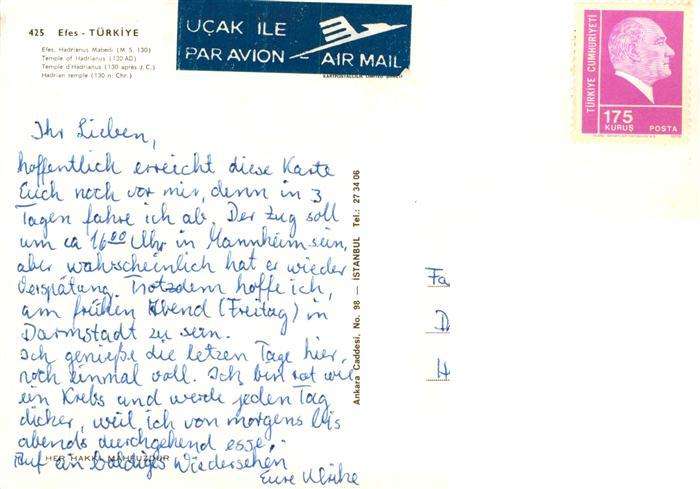 425 Efes - TÜRKİYE
Efes. Hadrianus Mabedi (M. S. 130)
Temple of Hadrianus (130 AD)
Temple d'Hadrianus (130 après J. C.)
Hadrian temple (130 n. Chr.)
UÇAK İLE
PAR AVION - AIR MAIL
TÜRKİYE CUMHURİYETİ
175
KURUŞ POSTA
Ihr Lieben,
hoffentlich erreicht diese Karte
Euch noch vor mir, denn in 3
Tagen fahre ich ab. Der Zug soll
um ca 16 00 Uhr in Mannheim sein,
aber wahrscheinlich hat er wieder
Verspätung. Trotzdem hoffe ich,
am frühen Abend (Freitag) in
Darmstadt zu sein.
Ich genieße die letzen Tage hier,
noch einmal voll. Ich bin rot wie
ein Krebs und werde jeden Tag
dicker, weil ich von morgens bis
abends durchgehend esse.
Auf ein baldiges Wiedersehen
Eure Ulrike
HER HAKKI MAHFUZDUR
Ankara Caddesi, No. 98 — İSTANBUL Tel.: 27 34 06
Fa
D
H